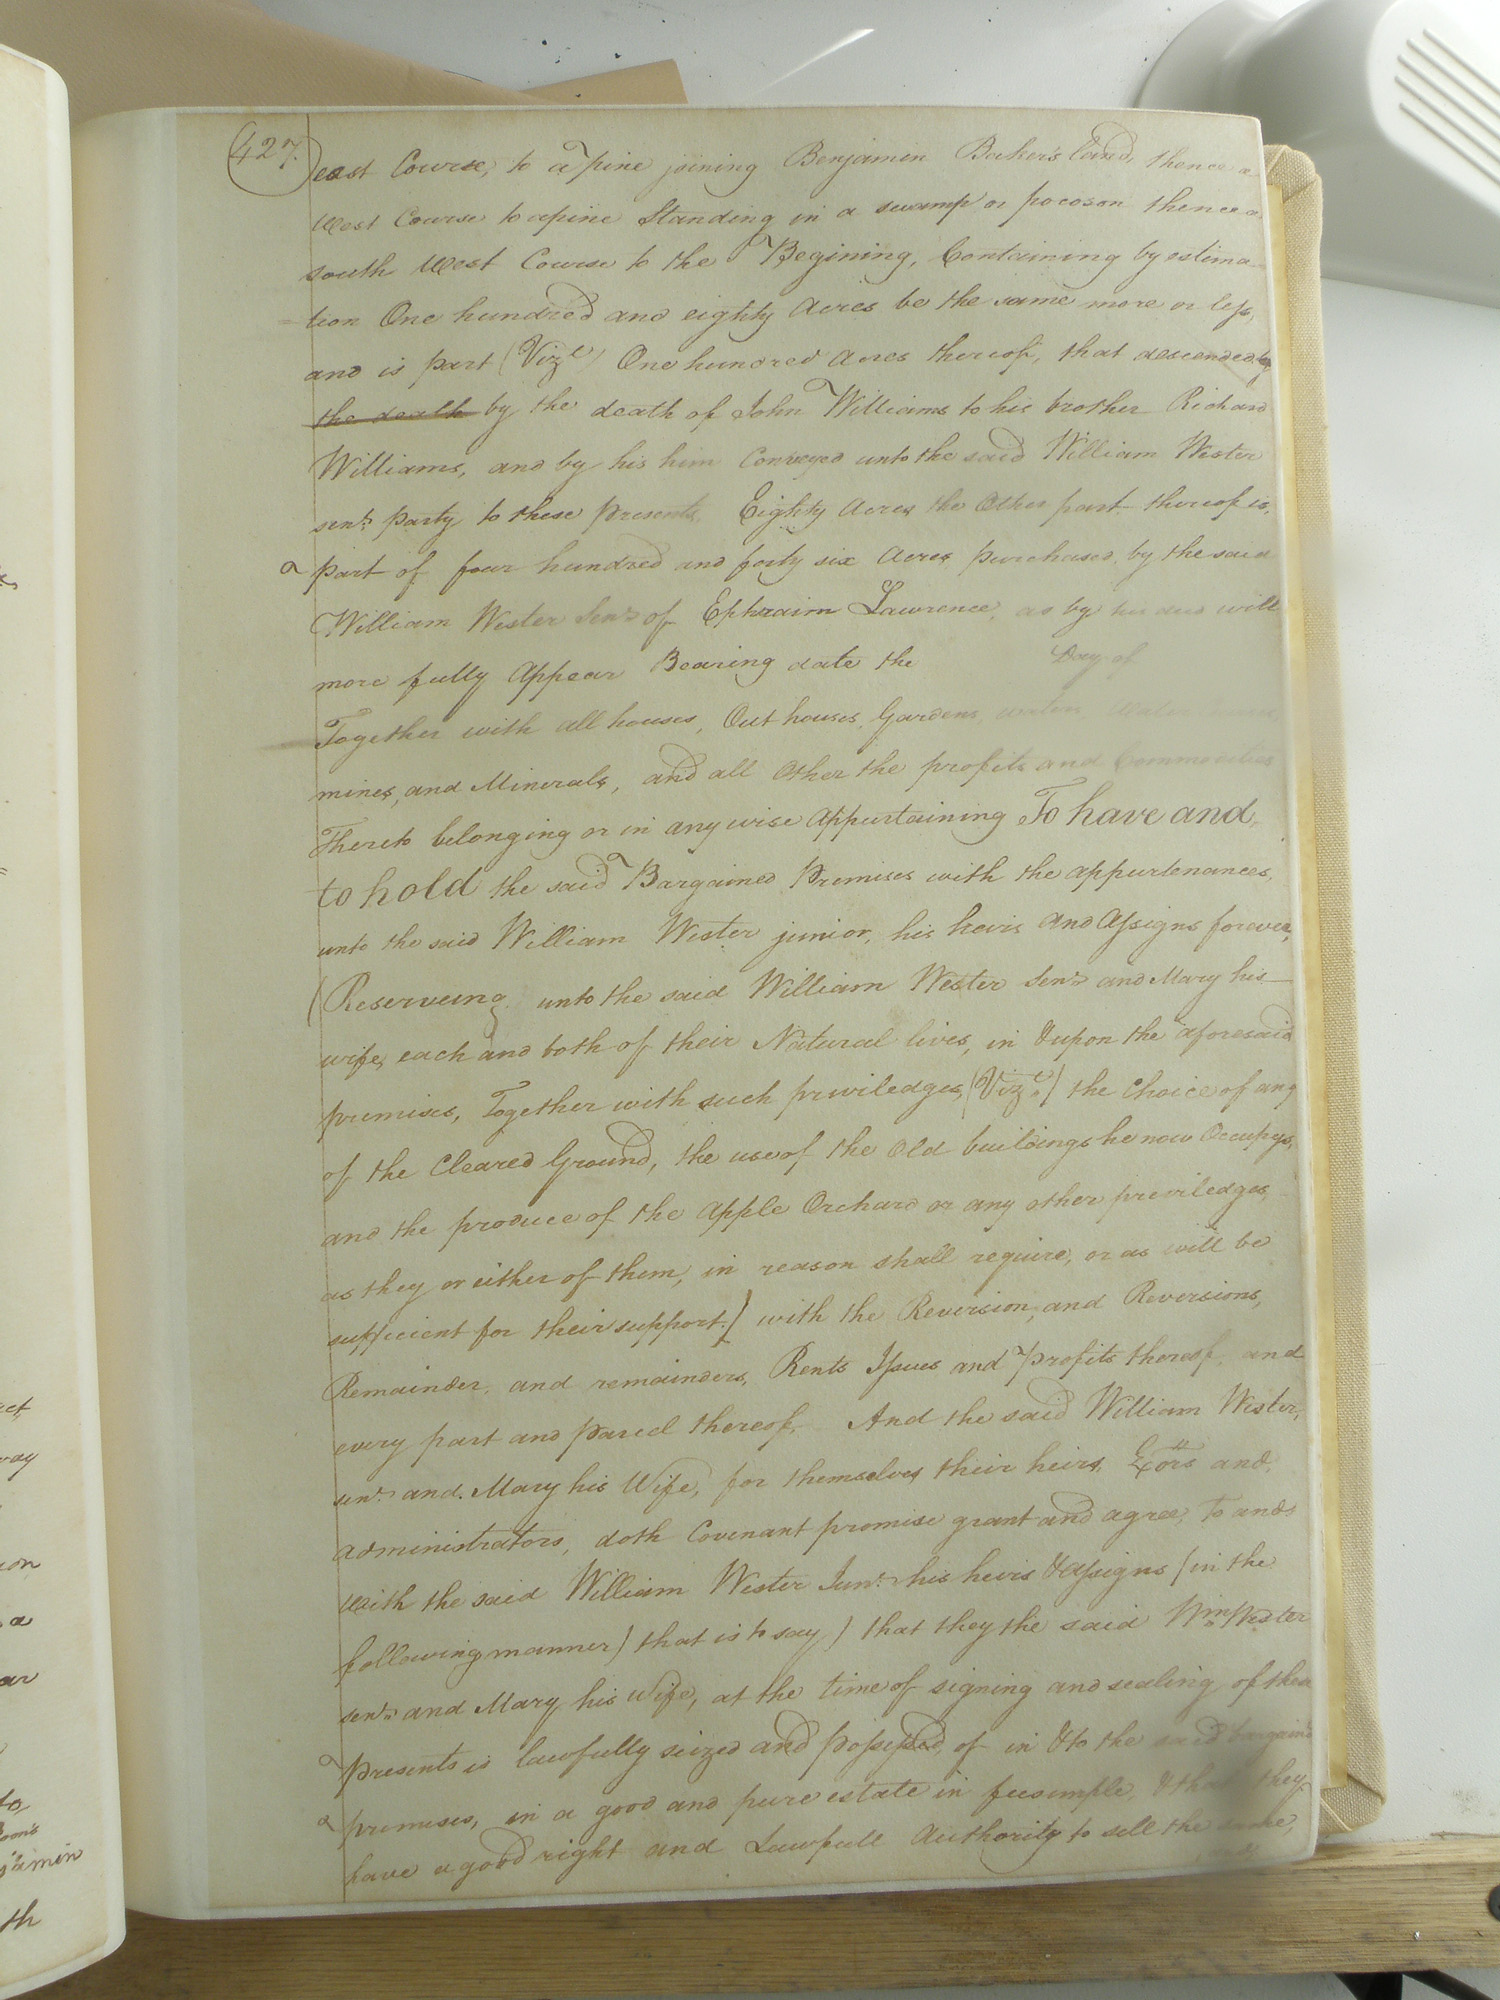 427.
east Course, to a pine joining Benjamin Baker's Land, thence a
West Course to a pine Standing in a swamp or pocoson thence a
south West Course to the Begining, Containing by estima-
tion One hundred and eighty Acres be the same more or less,
and is part (Vizt) One hundred Acres thereof, that descended by
the death by the death of John Williams to his brother Richard
Williams, and by his him Conveyed unto the said William Wester
senr. party to these presents, Eighty Acres the Other part thereof is,
part of four hundred and forty six Acres, purchased, by the said
William Wester Senr of Ephraim Lawrence, as by his deed will
more fully Appear Bearing date the Day of
Together with all houses, Out houses, Gardens, waters, Water
mines, and Minerals, and all Other the profits and Commodities
Thereto belonging or in any wise Appurtaining To have and
to hold the said Bargained Premises with the appurtenances,
unto the said William Wester junior, his heirs and Assigns forever,
(Reserveing unto the said William Wester Senr and Mary his
wife, each and both of their Natural lives, in & upon the aforesaid
premises, Together with such priviledges, (Vizt.) the Choice of any
of the Cleared Ground, the use of the Old buildings he now Occupys,
and the produce of the Apple Orchard or any other previledges,
as they or either of them, in reason shall require, or as will be
sufficient for their support.) with the Reversion, and Reversions,
Remainder, and remainders, Rents Issues and Profits thereof, and
every part and parcel thereof. And the said William Wester,
senr. and Mary his Wife, for themselves, their heirs, Exors and
administrators, doth Covenant promise grant and agree, to and
with the said William Wester Junr. his heirs & Assigns (in the
following manner) that is to say) that they the said Wm Wester
senr. and Mary his Wife, at the time of signing and sealing of these
presents is lawfully seized and possessed, of in & to the said bargain'd
premises, in a good and pure estate in feesimple, & that they
have a good right and Lawfull Authority to sell the same,
ect,
ion
a
ar
to,
jamin
th